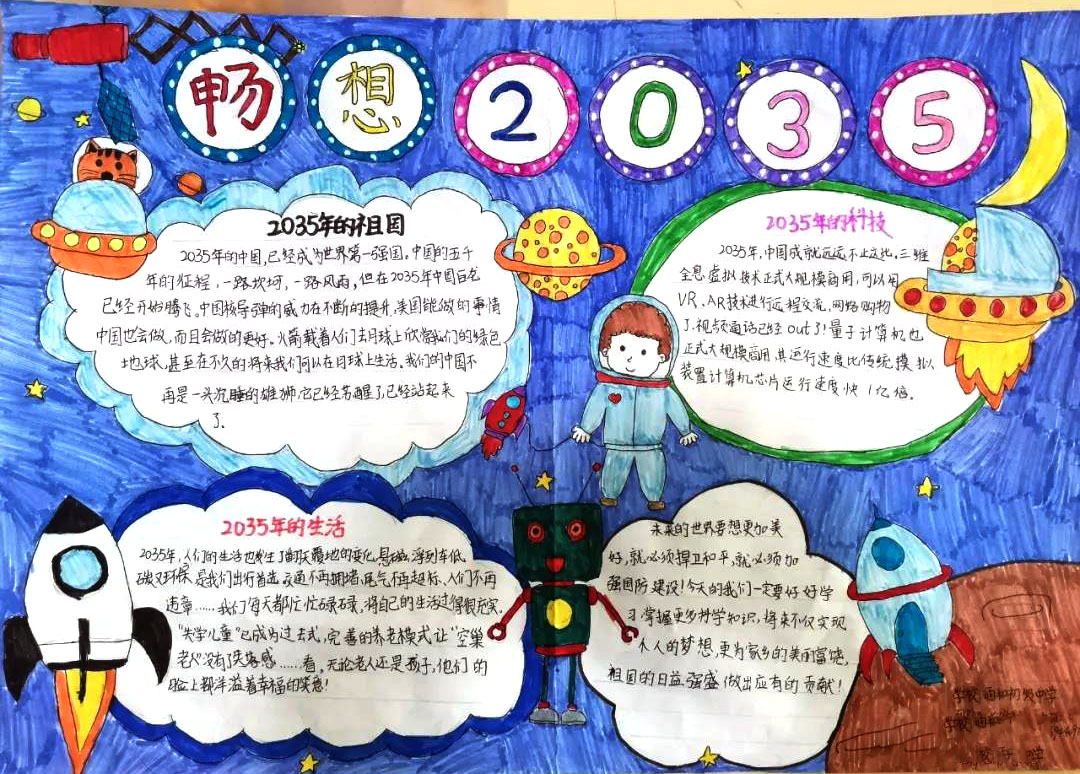 畅想2035
2035年的祖国
2035年的中国,已经成为世界第一强国,中国的五千
年的征程,一路坎坷,一路风雨,但在2035年中国
已经开始腾飞,中国核导弹的威力在不断的提升,美国能做的事情
中国也会做,而且会做的更好。火箭载着人们去月球上欣常我们的绿色
地球,甚至在不久的将来我们可以在月球上生活。我们的中国不
再是一头沉睡的雄狮,它已经苏醒了,已经站起来
了.
2035年的科技
2035年,中国成就远远不止这些,三维
全息虚拟技术正式大规模商用,可以用
VR、AR技术进行远程交流,网络购物
了.视频通话已经out了!量子计算机也
正式大规模商用,其运行速度比传统模拟
装置计算机芯片运行速度快1亿倍.
2035年的生活
2035年,人们的生活也发生了翻天覆地的变化,悬磁浮列车低
碳环保是我们出行首选,交通不再拥堵,尾气不再超标、人们不再
违章……我们每天都忙忙碌碌,将自己的生活过得很充实,
"失学儿童"已成为过去式,完善的养老模式让"空巢
老人"没有了失落感……看,无论老人还是孩子,他们的
脸上都洋溢着幸福的笑意!
未来的世界要想更加美
好,就必须捍卫和平,就必须加
强国防建设!今天的我们一定要好好学
习.掌握更多科学知识,将来不仅实现
个人的梦想,更为家乡的美丽富饶,
祖国的日益强盛做出应有的贡献!